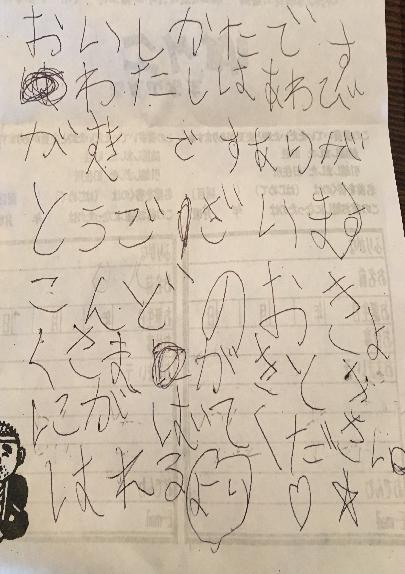 おいしかたです
わたしはあわび
がすきですありが
とうございます
こんどのおき
くさまがきとき
にがはいてください
はれるより♡☆